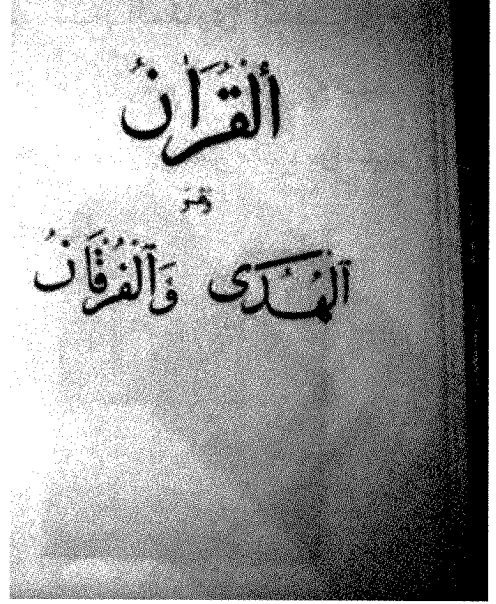 ألقرانُ
هُوَ
ألهُدَى وَألفُرقَانُ